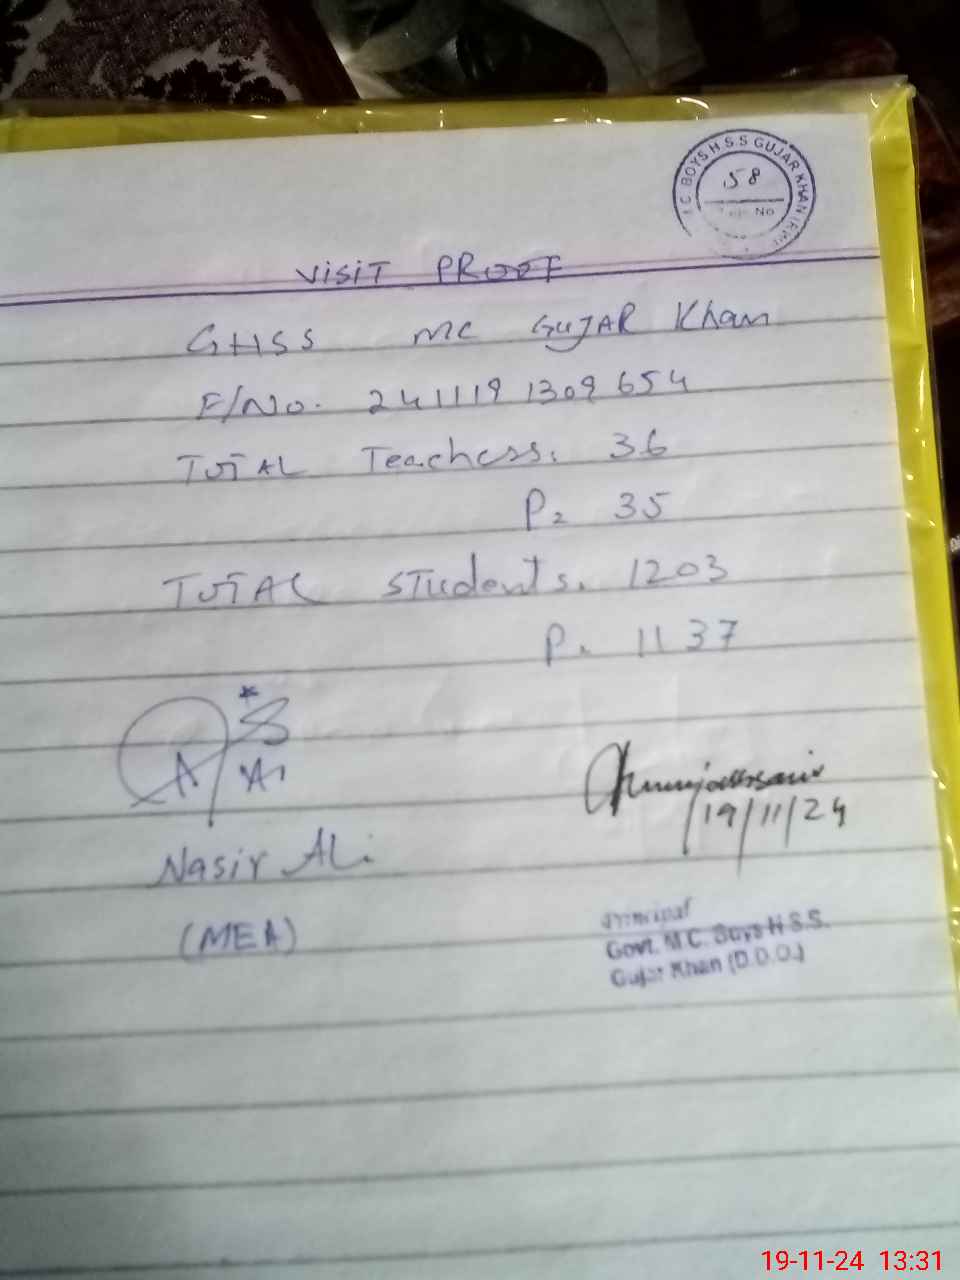 M C BOYS H.S.S GUJAR KHAN (RWP)
58
No
VISIT PROOF
GHSS MC GUJAR Khan
F/No. 241119 1309 654
TOTAL Teachers. 36
P= 35
TOTAL Students. 1203
P. 1137
19/11/24
Nasir Ali.
(MEA)
Principal
Govt. M.C. Boys H.S.S.
Gujar Khan (D.D.O.)
19-11-24 13:31